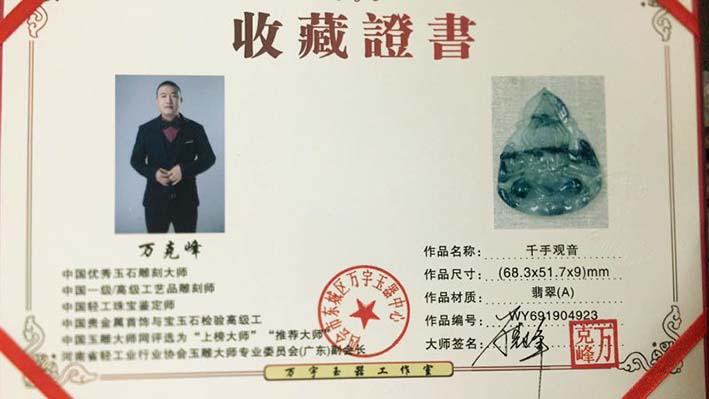 收藏證書
万克峰
中国优秀玉石雕刻大师
中国一级/高级工艺品雕刻师
中国轻工珠宝鉴定师
中国贵金属首饰与宝玉石检验高级工
中国玉雕大师网评选为“上榜大师”“推荐大师”
河南省轻工业行业协会玉雕大师专业委员会(广东)副会长
四会市东城区万宇玉器中心
作品名称: 千手观音
作品尺寸: (68.3x51.7x9)mm
作品材质: 翡翠(A)
作品编号: WY691904923
大师签名:
万克峰
万宇玉器工作室